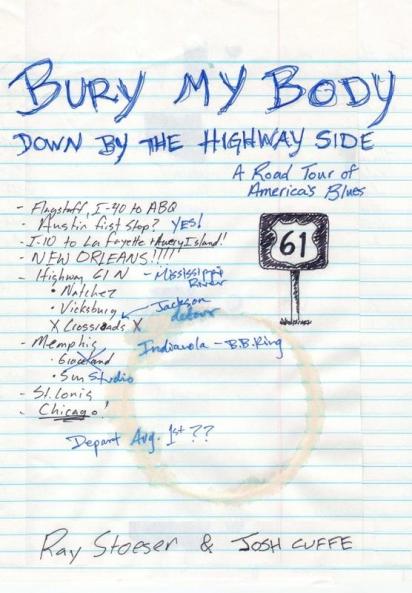 BURY MY BODY
DOWN BY THE HIGHWAY SIDE
A Road Tour of
America's Blues
- Flagstaff, I-40 to ABQ
- Austin first stop? YES!
- I-10 to Lafayette + Avery Island!
- NEW ORLEANS!!!!!
- Highway 61 N - Mississippi River
• Natchez
• Vicksburg
Jackson detour
X Crossroads X
- Memphis
Indianola - B.B. King
• Graceland
• Sun Studio
- St. Louis
- Chicago!
61
Depart Aug. 1st??
Ray Stoeser & JOSH CUFFE